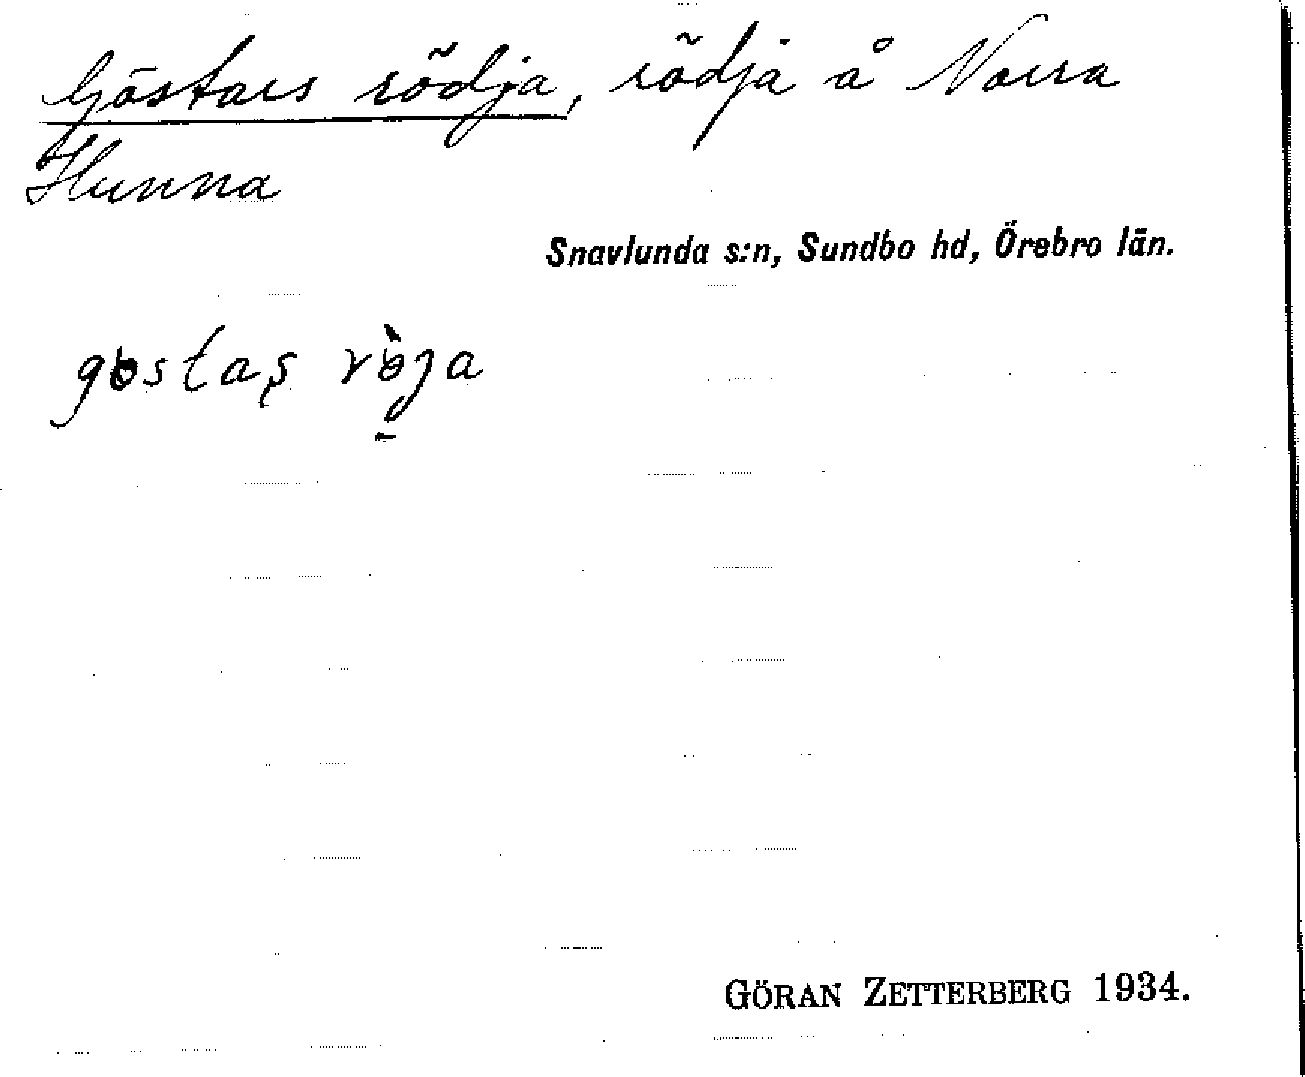 Göstars rödja, rödja å Norra
Hunna
Snavlunda s:n, Sundbo hd, Örebro län.
gɵstaʂ rɵ̀ja
GÖRAN ZETTERBERG 1934.